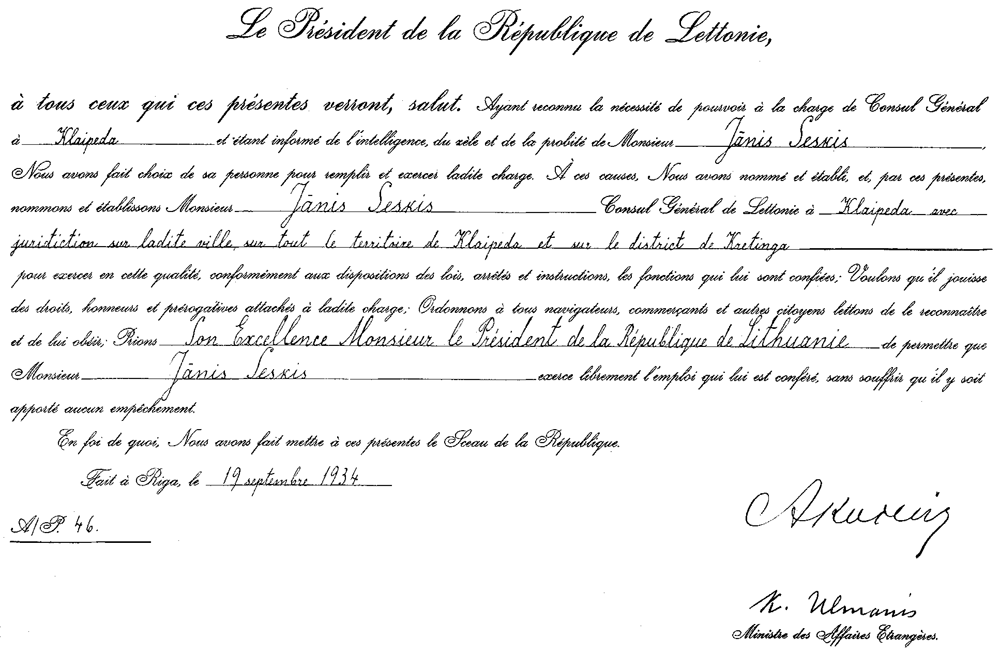 Le Président de la République de Lettonie,
à tous ceux qui ces présentes verront, salut. Ayant reconnu la nécessité de pourvoir à la charge de Consul Général
à Klaipeda et étant informé de l'intelligence, du zèle et de la probité de Monsieur Jānis Seskis,
Nous avons fait choix de sa personne pour remplir et exercer ladite charge. À ces causes, Nous avons nommé et établi, et, par ces présentes,
nommons et établissons Monsieur Jānis Seskis Consul Général de Lettonie à Klaipeda avec
juridiction sur ladite ville, sur tout le territoire de Klaipeda et sur le district de Kretinga
pour exercer en cette qualité, conformément aux dispositions des lois, arrêtés et instructions, les fonctions qui lui sont confiées; Voulons qu'il jouisse
des droits, honneurs et prérogatives attachés à ladite charge; Ordonnons à tous navigateurs, commerçants et autres citoyens lettons de le reconnaître
et de lui obéir; Prions Son Excellence Monsieur le Président de la République de Lithuanie de permettre que
Monsieur Jānis Seskis exerce librement l'emploi qui lui est conféré, sans souffrir qu'il y soit
apporté aucun empêchement.
En foi de quoi, Nous avons fait mettre à ces présentes le Sceau de la République.
Fait à Riga, le 19 septembre 1934
A/P. 46.
K. Ulmanis
Ministre des Affaires Etrangères.